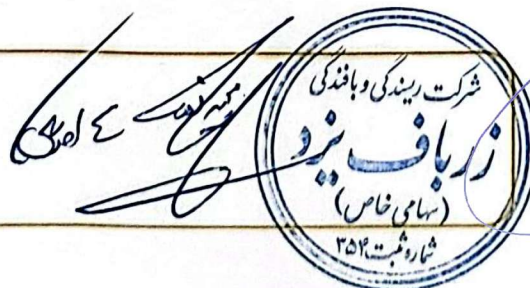 شرکت ریسندگی و بافندگی
زرباف یزد
(سهامی خاص)
شماره ثبت ۳۵۴